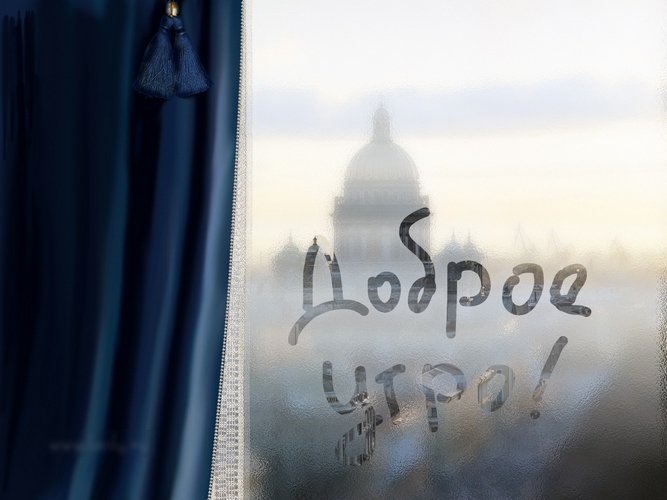 Доброе
утро!